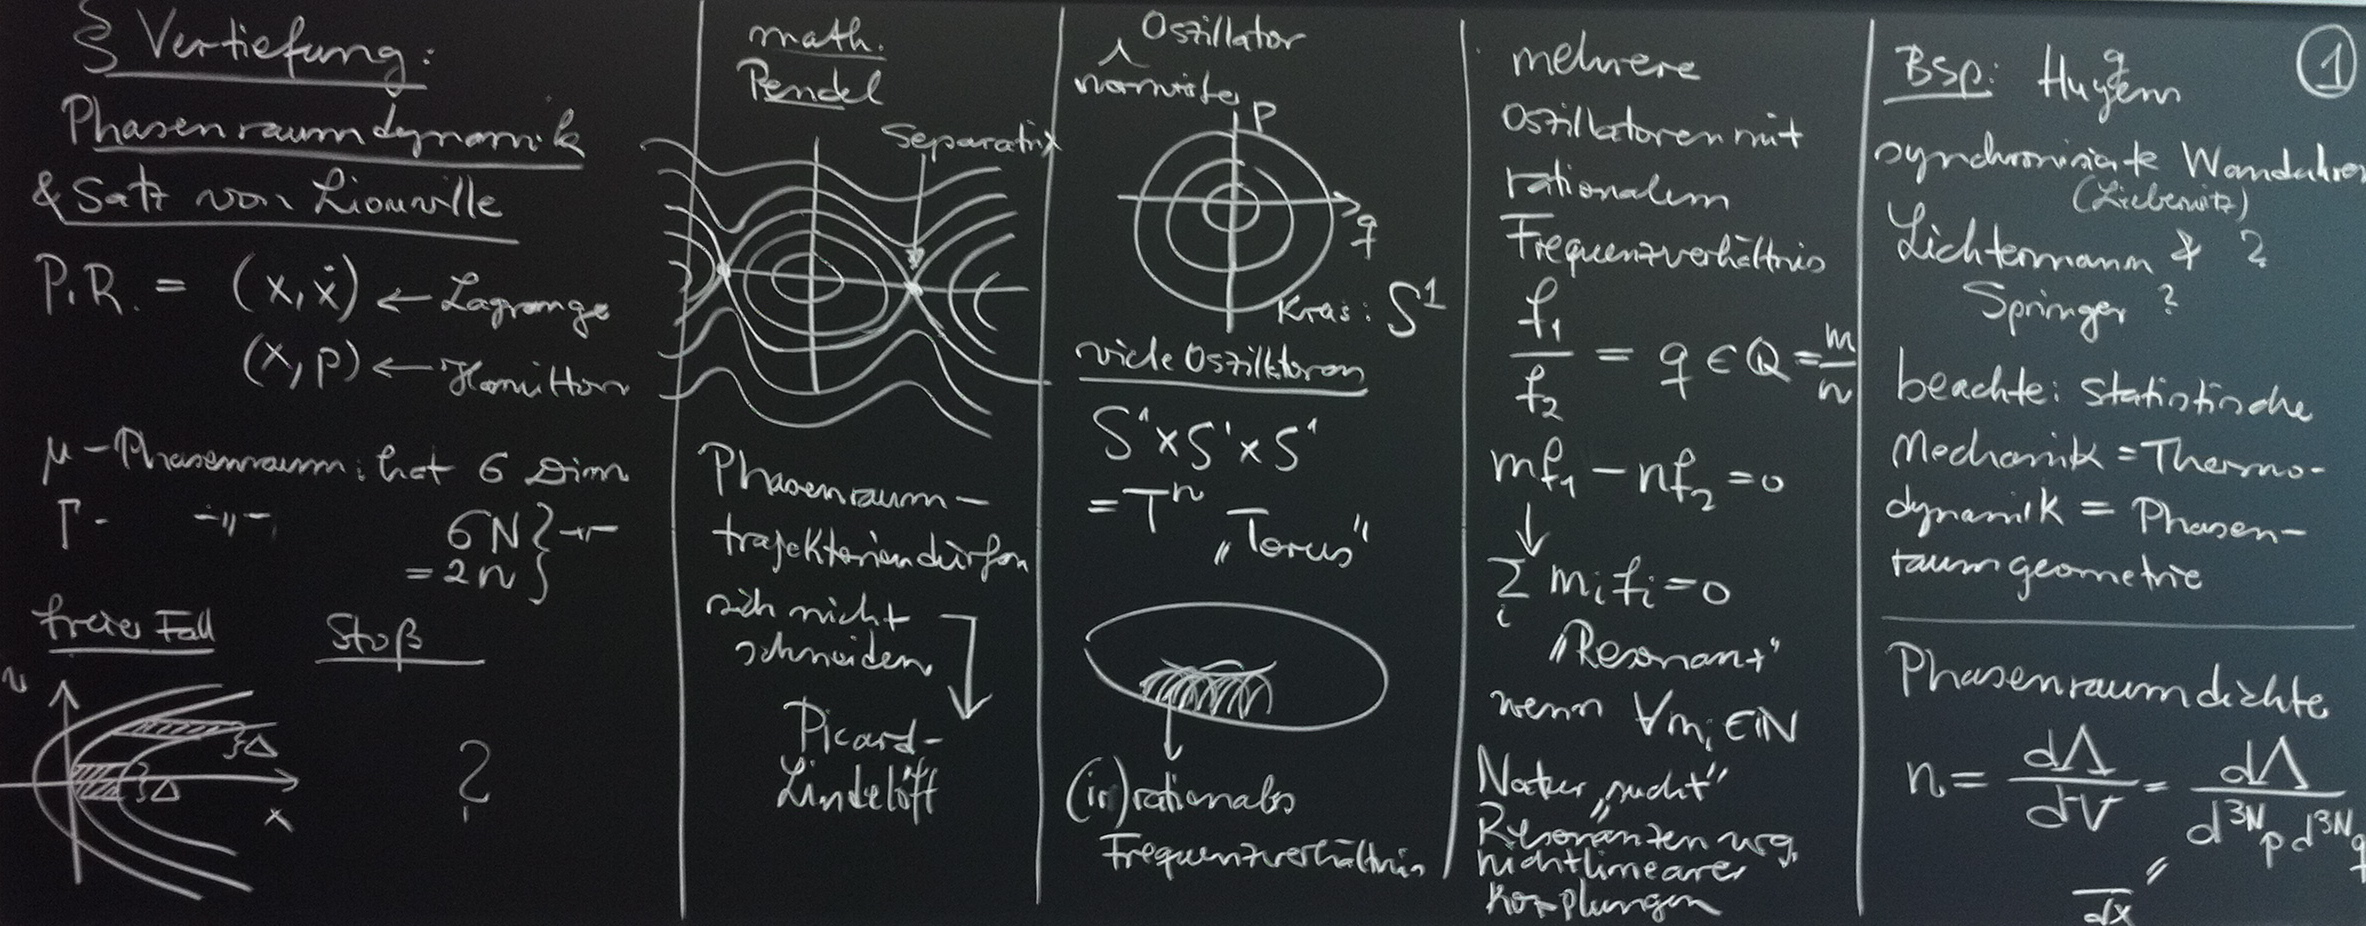 § Vertiefung:
Phasenraumdynamik
& Satz von Liouville
P.R. = (x, ẋ) ← Lagrange
(x, p) ← Hamilton
μ-Phasenraum: hat 6 Dim
Γ- -"- 6N } -"-
= 2n }
freier Fall
Stoß
v
Δ
Δ
x
?
math.
Pendel
Separatrix
Phasenraum-
trajektorien dürfen
sich nicht
schneiden
Picard-
Lindelöff
Oszillator
p
q
Kreis: S¹
viele Oszillatoren
S¹ x S¹ x S¹
= Tⁿ
„Torus"
(ir)rationales
Frequenzverhältnis
mehrere
Oszillatoren mit
rationalem
Frequenzverhältnis
f₁/f₂ = q ∈ Q = m/n
mf₁ - nf₂ = 0
↓
Σ_i m_i f_i = 0
„Resonant"
wenn ∀m_i ∈ N
Natur „sucht"
Resonanzen wg.
nichtlinearer
Kopplungen
1
Bsp: Huygens
synchronisierte Wanduhren
Lichtermann & ?
Springer ?
beachte: statistische
Mechanik = Thermo-
dynamik = Phasen-
raumgeometrie
Phasenraumdichte
n = dΛ/dV = dΛ/d³ᴺp d³ᴺq
"
dx